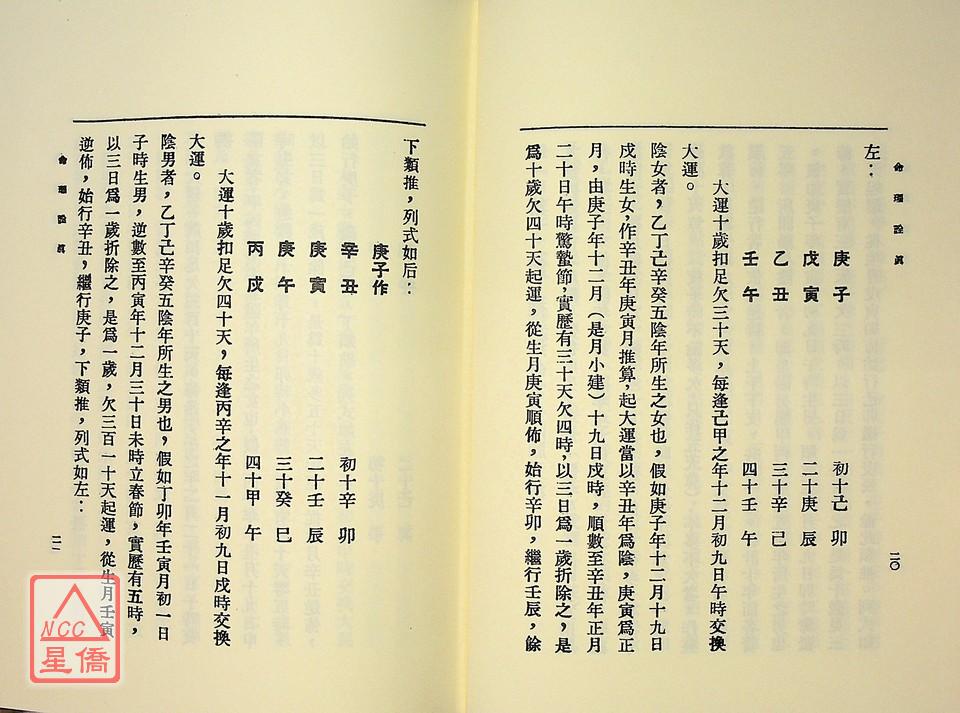 命理詮眞
左：
庚子　初十己卯
戊寅　二十庚辰
乙丑　三十辛巳
壬午　四十壬午
大運十歲扣足欠三十天，每逢己甲之年十二月初九日午時交換
大運。
陰女者，乙丁己辛癸五陰年所生之女也，假如庚子年十二月十九日
戌時生女，作辛丑年庚寅月推算，起大運當以辛丑年爲陰，庚寅爲正
月，由庚子年十二月（是月小建）十九日戌時，順數至辛丑年正月
二十日午時驚蟄節，實歷有三十天欠四時，以三日爲一歲折除之，是
爲十歲欠四十天起運，從生月庚寅順佈，始行辛卯，繼行壬辰，餘
二〇
下類推，列式如后：
庚子作
辛丑　初十辛卯
庚寅　二十壬辰
庚午　三十癸巳
丙戌　四十甲午
大運十歲扣足欠四十天，每逢丙辛之年十一月初九日戌時交換
大運。
陰男者，乙丁己辛癸五陰年所生之男也，假如丁卯年壬寅月初一日
子時生男，逆數至丙寅年十二月三十日未時立春節，實歷有五時，
以三日爲一歲折除之，是爲一歲，欠三百一十天起運，從生月壬寅
逆佈，始行辛丑，繼行庚子，下類推，列式如左：
命理詮眞
二一
NCC
星僑